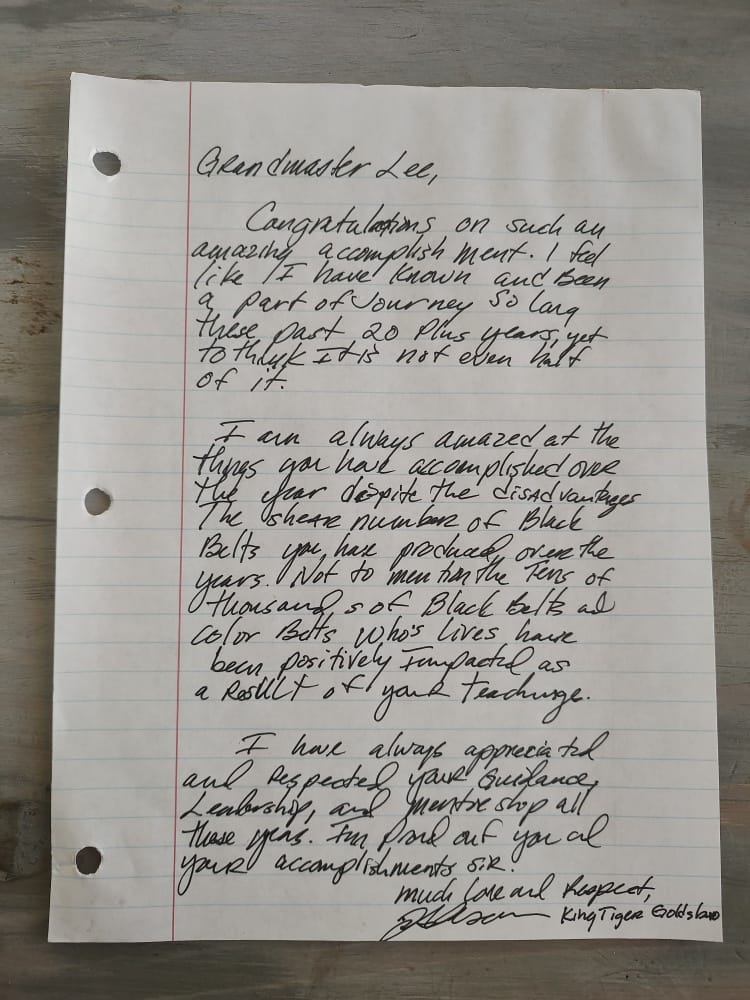 Grandmaster Lee,
Congratulations on such an
amazing accomplishment. I feel
like I have known and Been
a part of Journey so long
these past 20 plus years, yet
to think It is not even half
of it.
I am always amazed at the
things you have accomplished over
the year despite the disadvantages
The shear number of Black
Belts you have produced over the
years. Not to mention the Tens of
thousands of Black Belts and
color Belts who's lives have
been positively Impacted as
a Result of your Teachings.
I have always appreciated
and Respected your Guidance,
Leadership, and mentorshop all
these years. I'm proud out you and
your accomplishments sir.
much love and Respect,
King Tiger Goldsboro